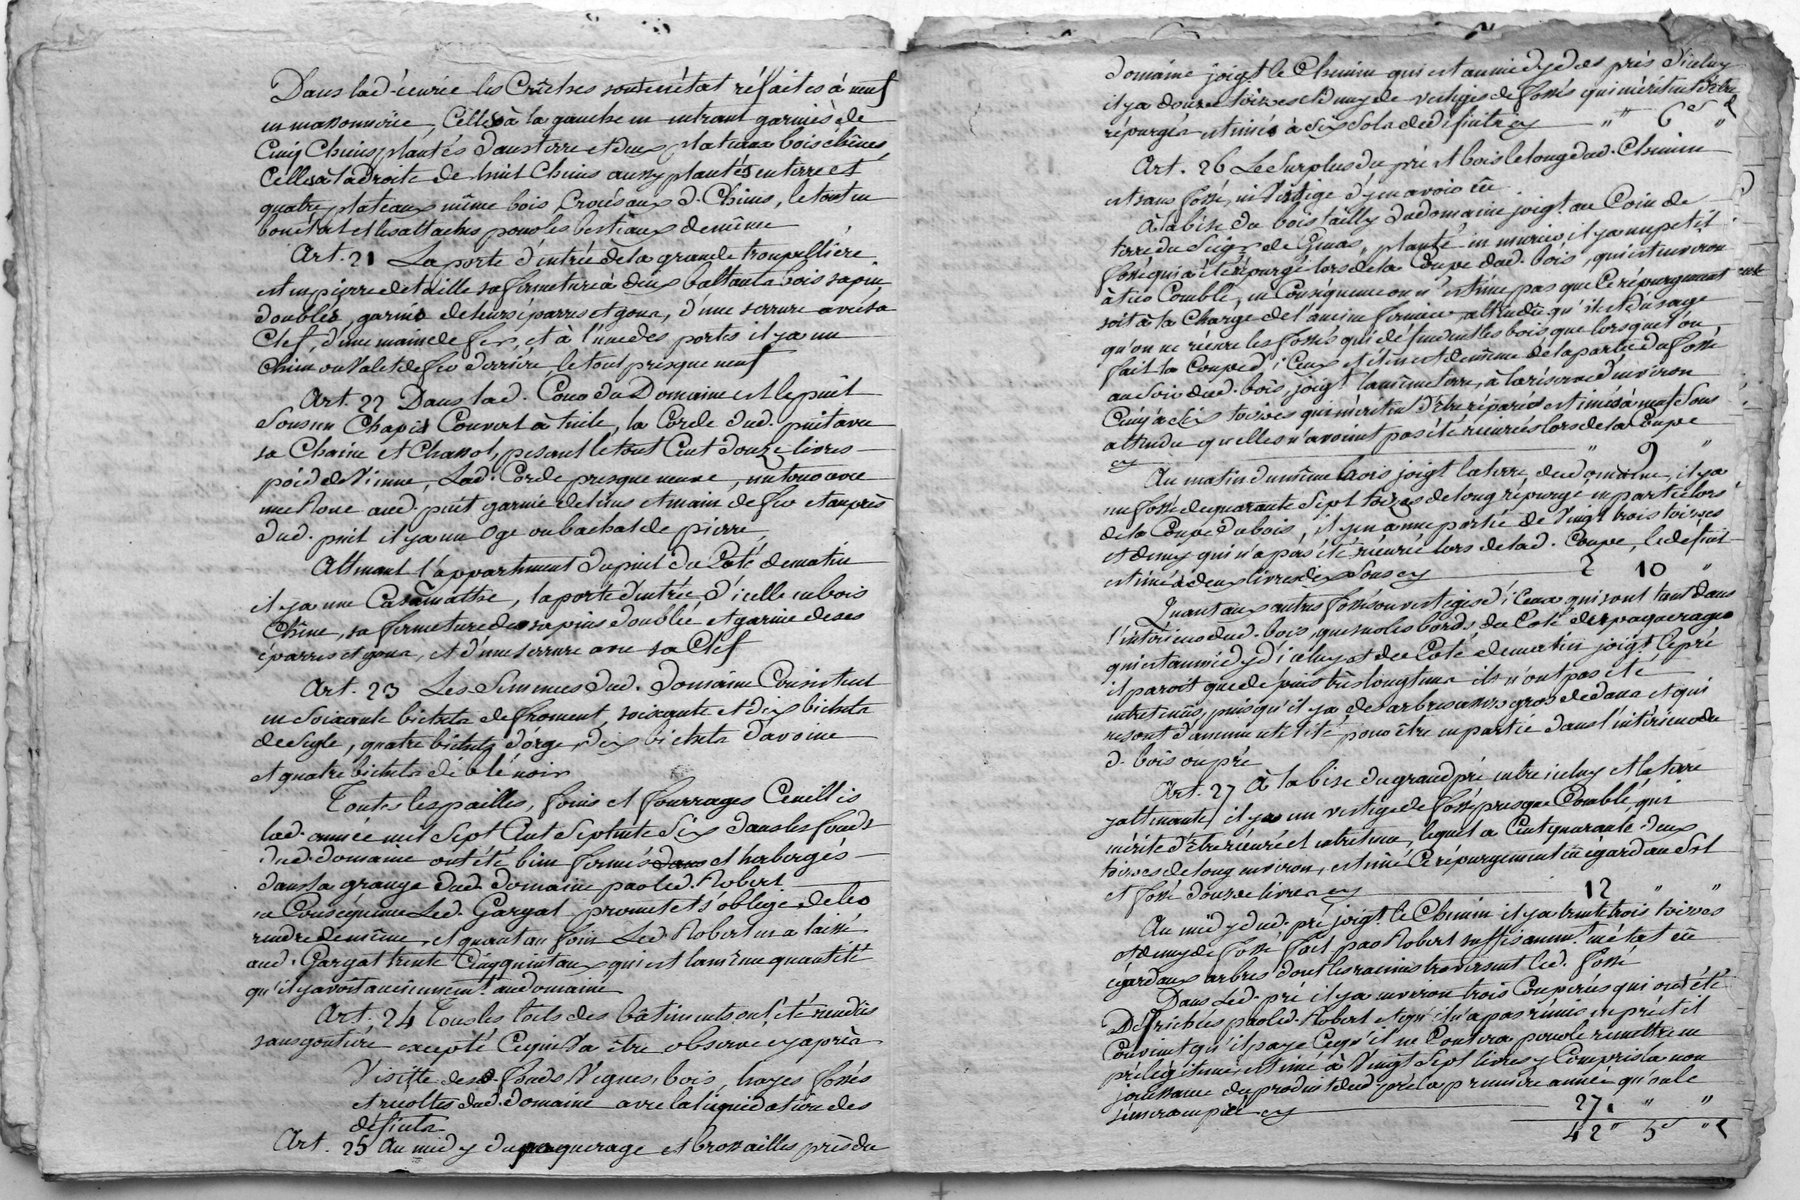 Dans lad. écurie les Crêches sont en état réfaites à neuf
en massonnerie, Celles à la gauche en entrant garnies de
Cinq Chêns plantés dans terre et deux plateaux bois chênes,
Celles à la droite de huit Chêns aussy plantés en terre et
quatre plateaux même bois, Croisés aux d. Chêns, le tout en
bon état et les attaches pour les bestiaux de même
Art. 21 La porte d'entrée de la grande
est en pierre de taille sa fermeture à deux battants bois sapin
doublés, garnis de leurs éparres et gons, d'une serrure avec sa
Clef, d'une main de fer, et à l'une des portes il y a un
Chien ou Valet de fer derrière le tout presque neuf
Art. 22 Dans lad. Cour du Domaine est le puit
Sous un Chapit Couvert à tuile, la Corde dud. puit avec
sa Chaine et Chassol, pesant le tout Cent douze livres
poid de Vienne, Lad. Corde presque neuve, un tour avec
une Roue aud. puit garnie de liens et main de fer et auprès
dud. puit il y a un Oge ou bachat de pierre
Attenant l'appartement du puit du Coté de matin
il y a une Casamathe, la porte d'entrée d'icelle en bois
Chêne, sa fermeture de sapins doublée et garnie de ses
éparres et gons, et d'une serrure avec sa Clef
Art. 23 Les Semences dud. Domaine Consistent
en Soixante bichets de froment, soixante et dix bichets
de Seigle, quatre bichets d'orge, dix bichets d'avoine
et quatre bichets de blé noir
Toutes les pailles, foins et fourrages Cueillis
lad. année mil Sept Cent Septente Six dans les fonds
dud. domaine ont été bien fermés dans et horbergés
dans la grange dud. domaine par led. Robert
en Conséquence Led. Gargat promet et s'oblige de les
rendre de même, et quant au foin Led. Robert en a laissé
aud. Gargat trente Cinq quintaux qui est la même quantité
qu'il y avoit anciennemt. aud. domaine
Art. 24 Tous les toits des bâtiments ont été rendus
sans goutière excepté Ce qui Va être observé cy après
Visitte desd. fonds Vignes, bois, hayes fossés
et récoltes dud. domaine avec la liquidation des
déficits
Art. 25 Au midy du paquerage et brossailles près du
domaine joigt. le Chemin qui est au midy des prés d'iceluy
il y a douze toises et demy de vestiges de fossés qui méritent d'être
répurgés estimés à Six Sols de déficit cy — " 6s "
Art. 26 Le Surplus du pré et bois le long dud. Chemin
est sans fossé, ni Vestige d'y en avoir eû
À la bise du bois tailly dud. domaine joigt. au Coin de
terre du Seigr. de planté en muriers, il y a un petit
fossé qui a été répurgé lors de la Coupe dud. bois, qui est environ
à tiers Comblé, en Conséquence on n'estime pas que Ce répurgement
soit à la Charge de l'ancien fermier attendu qu'il est d'usage
qu'on ne récure les fossés qui défendent les bois que lorsque l'on
fait la Coupe d'iceux, et il en est de même de la partie du fossé
au Soir dud. bois, joigt. la même terre, à la réserve d'environ
Cinq à dix toises qui méritent d'être réparées estimés à neuf Sous
attendu qu'elles n'avoient pas été récurées lors de la Coupe
cy — " 9 "
Au matin du même bois joigt. la terre, dud. domaine, il y a
un fossé de quarante Sept toises de long répurgé en partie lors
de la Coupe du bois, il y en a une partie de Vingt trois toises
et demy qui n'a pas été récurée lors de lad. Coupe, le déficit
estimé à deux livres dix Sous cy — 2 10 "
Quant aux autres fossés ou vestiges d'iceux qui sont tant dans
l'intérieur dud. bois, que sur les bords du Coté des paquerages
qui est au midy d'iceluy et du Coté de matin joigt. le pré
il paroit que depuis très longtems ils n'ont pas été
entretenus, puisqu'il y a des arbres assés gros dedans et qui
ne sont d'aucune utilité pour être en partie dans l'intérieur du
d. bois ou pré
Art. 27 À la bise du grand pré entre iceluy et la terre
y attenante, il y a un vestige de fossé presque Comblé qui
mérite d'être récuré et entretenu, lequel a Cent quarante deux
toises de long environ, estimé Ce répurgement eû égard au Sol
et fossé douze livres cy — 12 " "
Au midy dud. pré joigt. le Chemin il y a trente trois toises
et demy de fossé fait par Robert suffisamment en état eû
égard aux arbres dont les racines traversent led. fossé
Dans Led. pré il y a environ trois Couperées qui ont été
Défrichées par led. Robert et qu'il n'a pas remis en pré et il
Convient qu'il paye Ce qu'il en Coutera pour le remettre en
pré légitime, estimé à Vingt Sept livres y Compris la non
jouissance du produit dud. pré la première année qu'on le
semera en pré cy — 27. " "
42" 5s "